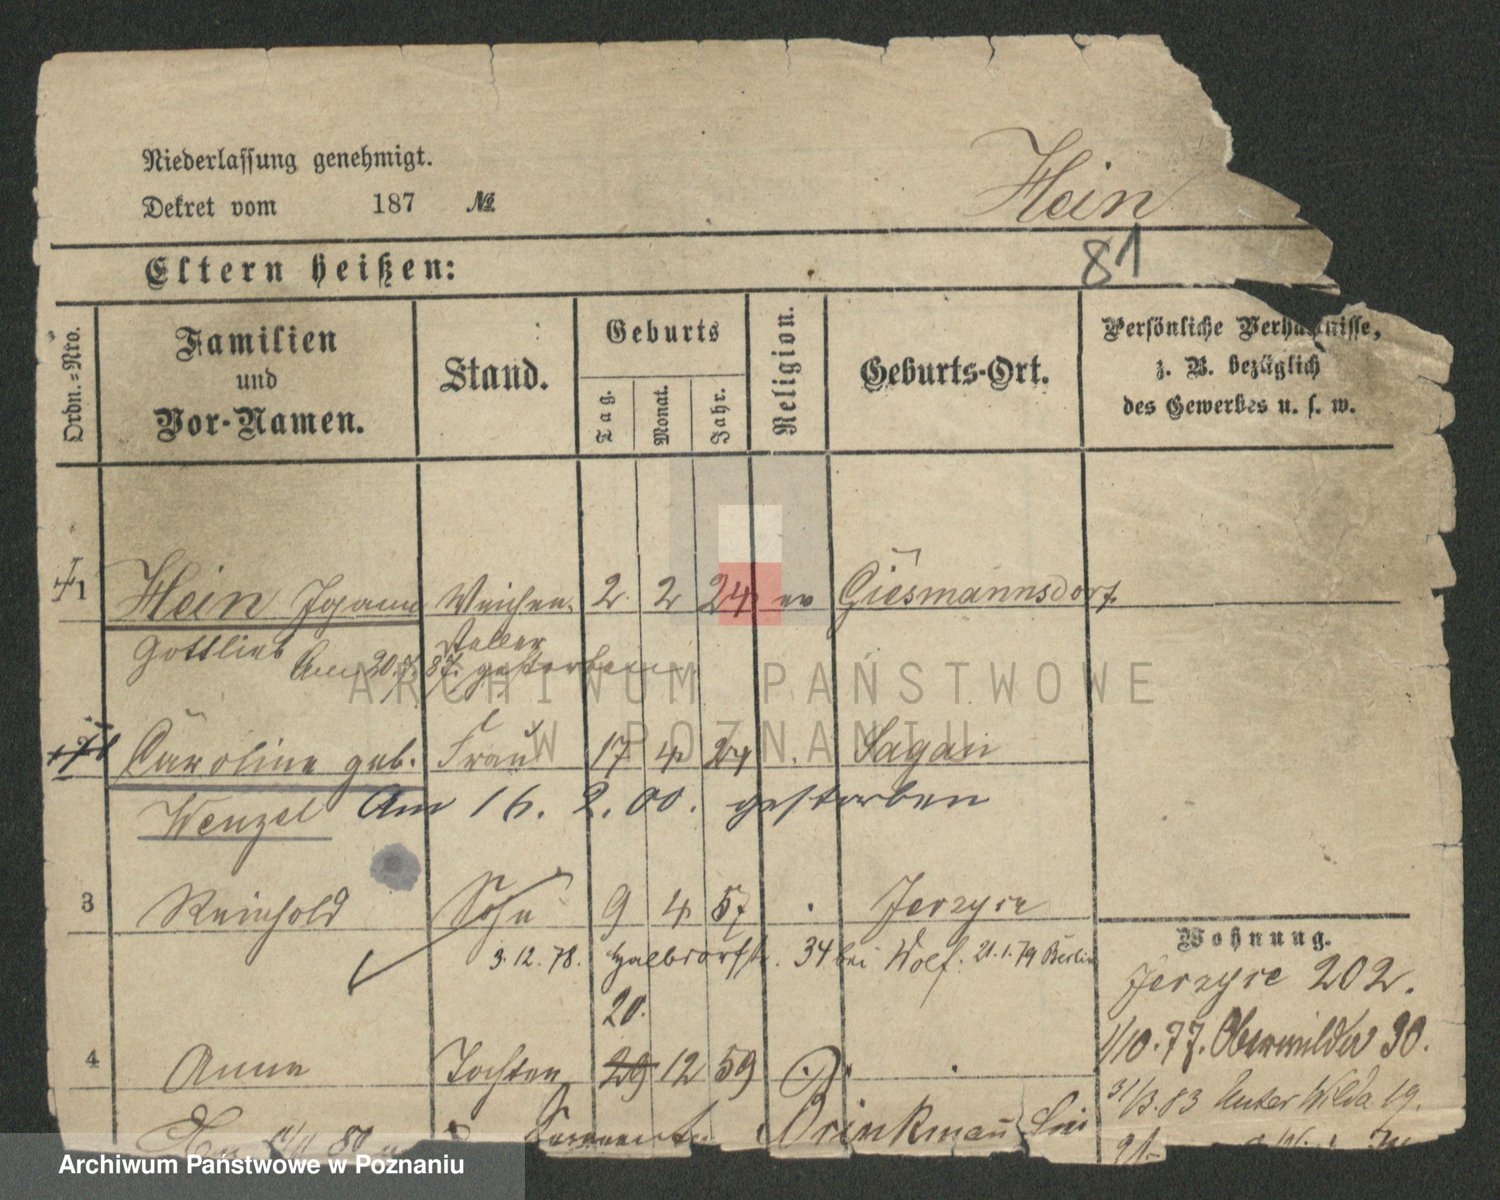 Niederlassung genehmigt.
Dekret vom 187 №
Hein
81
Eltern heißen:
Ordn.-Nro.
Familien
und
Vor-Namen.
Stand.
Geburts
Tag.
Monat.
Jahr.
Religion.
Geburts-Ort.
Persönliche Verhältnisse,
z. B. bezüglich
des Gewerbes u. s. w.
1 Hein Johann Weichen- 2 2 24 ev Giesmannsdorf
Gottlieb steller
Am 20.7.87. gestorben
Caroline geb. Frau 17 4 24 . Sagan
Wenzel Am 16. 2. 00. gestorben
3 Reinhold Sohn 9 4 57 . Jerzyce
3.12.78. Halbdorfstr. 34 bei Wolf. 21.1.79 Berlin
20.
4 Anna Tochter 29 12 59 . .
Brinkmann
Wohnung.
Jerzyce 202.
1/10.77. Oberwilda 30.
31/3.83 Unter Wilda 19.
ARCHIWUM PAŃSTWOWE
W POZNANIU
Archiwum Państwowe w Poznaniu